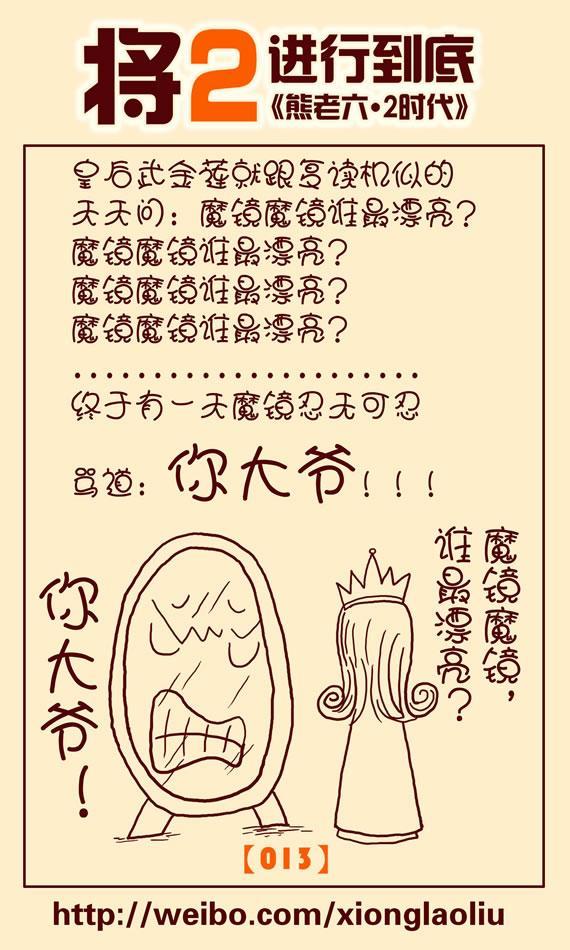 将2进行到底
《熊老六·2时代》
皇后武金莲就跟复读机似的
天天问：魔镜魔镜谁最漂亮？
魔镜魔镜谁最漂亮？
魔镜魔镜谁最漂亮？
魔镜魔镜谁最漂亮？
.......................
终于有一天魔镜忍无可忍
骂道：你大爷！！！
魔镜魔镜，
谁最漂亮？
你大爷！
【013】
http://weibo.com/xionglaoliu